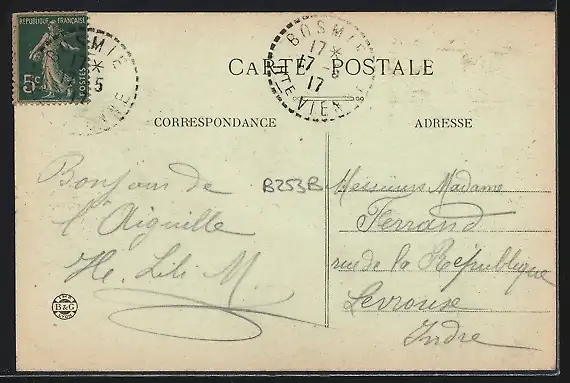 REPUBLIQUE FRANÇAISE
5c
POSTES
BOSMIE
17*
17 -5
17
HTE VIENNE
CARTE POSTALE
CORRESPONDANCE
ADRESSE
Bonjour de
l'Aiguille
He. Lili M.
B253B
Messieurs Madame
Ferrand
rue de la République
Levrouse
Indre
IMP.
B&G
LYON